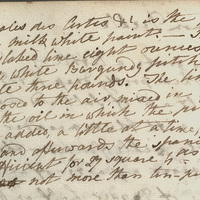 ales des Artes &c is the
milk white paint. —
slaked lime, eight ounces
white Burgundy pitch
three pounds. The li
to the air mixed in
the oil in which the
added, a little at a time,
and afterwards the spani
for 27 square
not more than ten-p